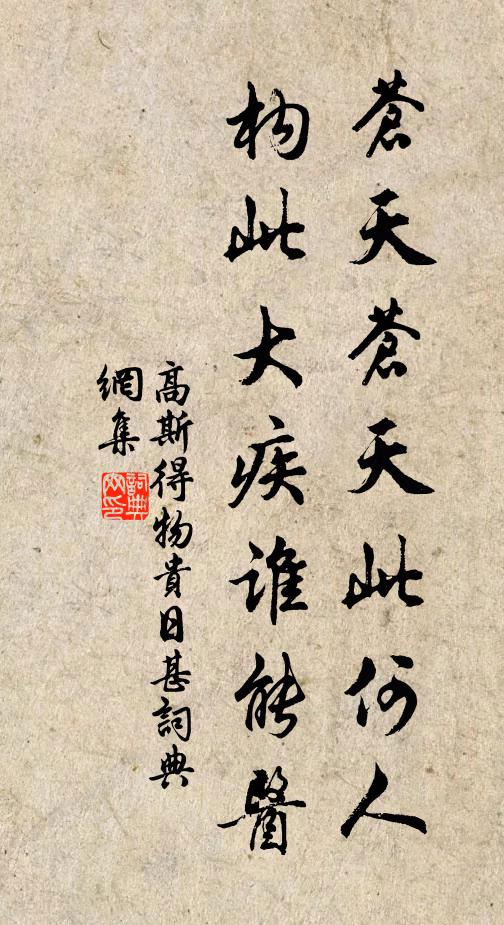 蒼天蒼天此何人
构此大疾誰能醫
高斯得物貴日甚詞典
網集
詞典
网印